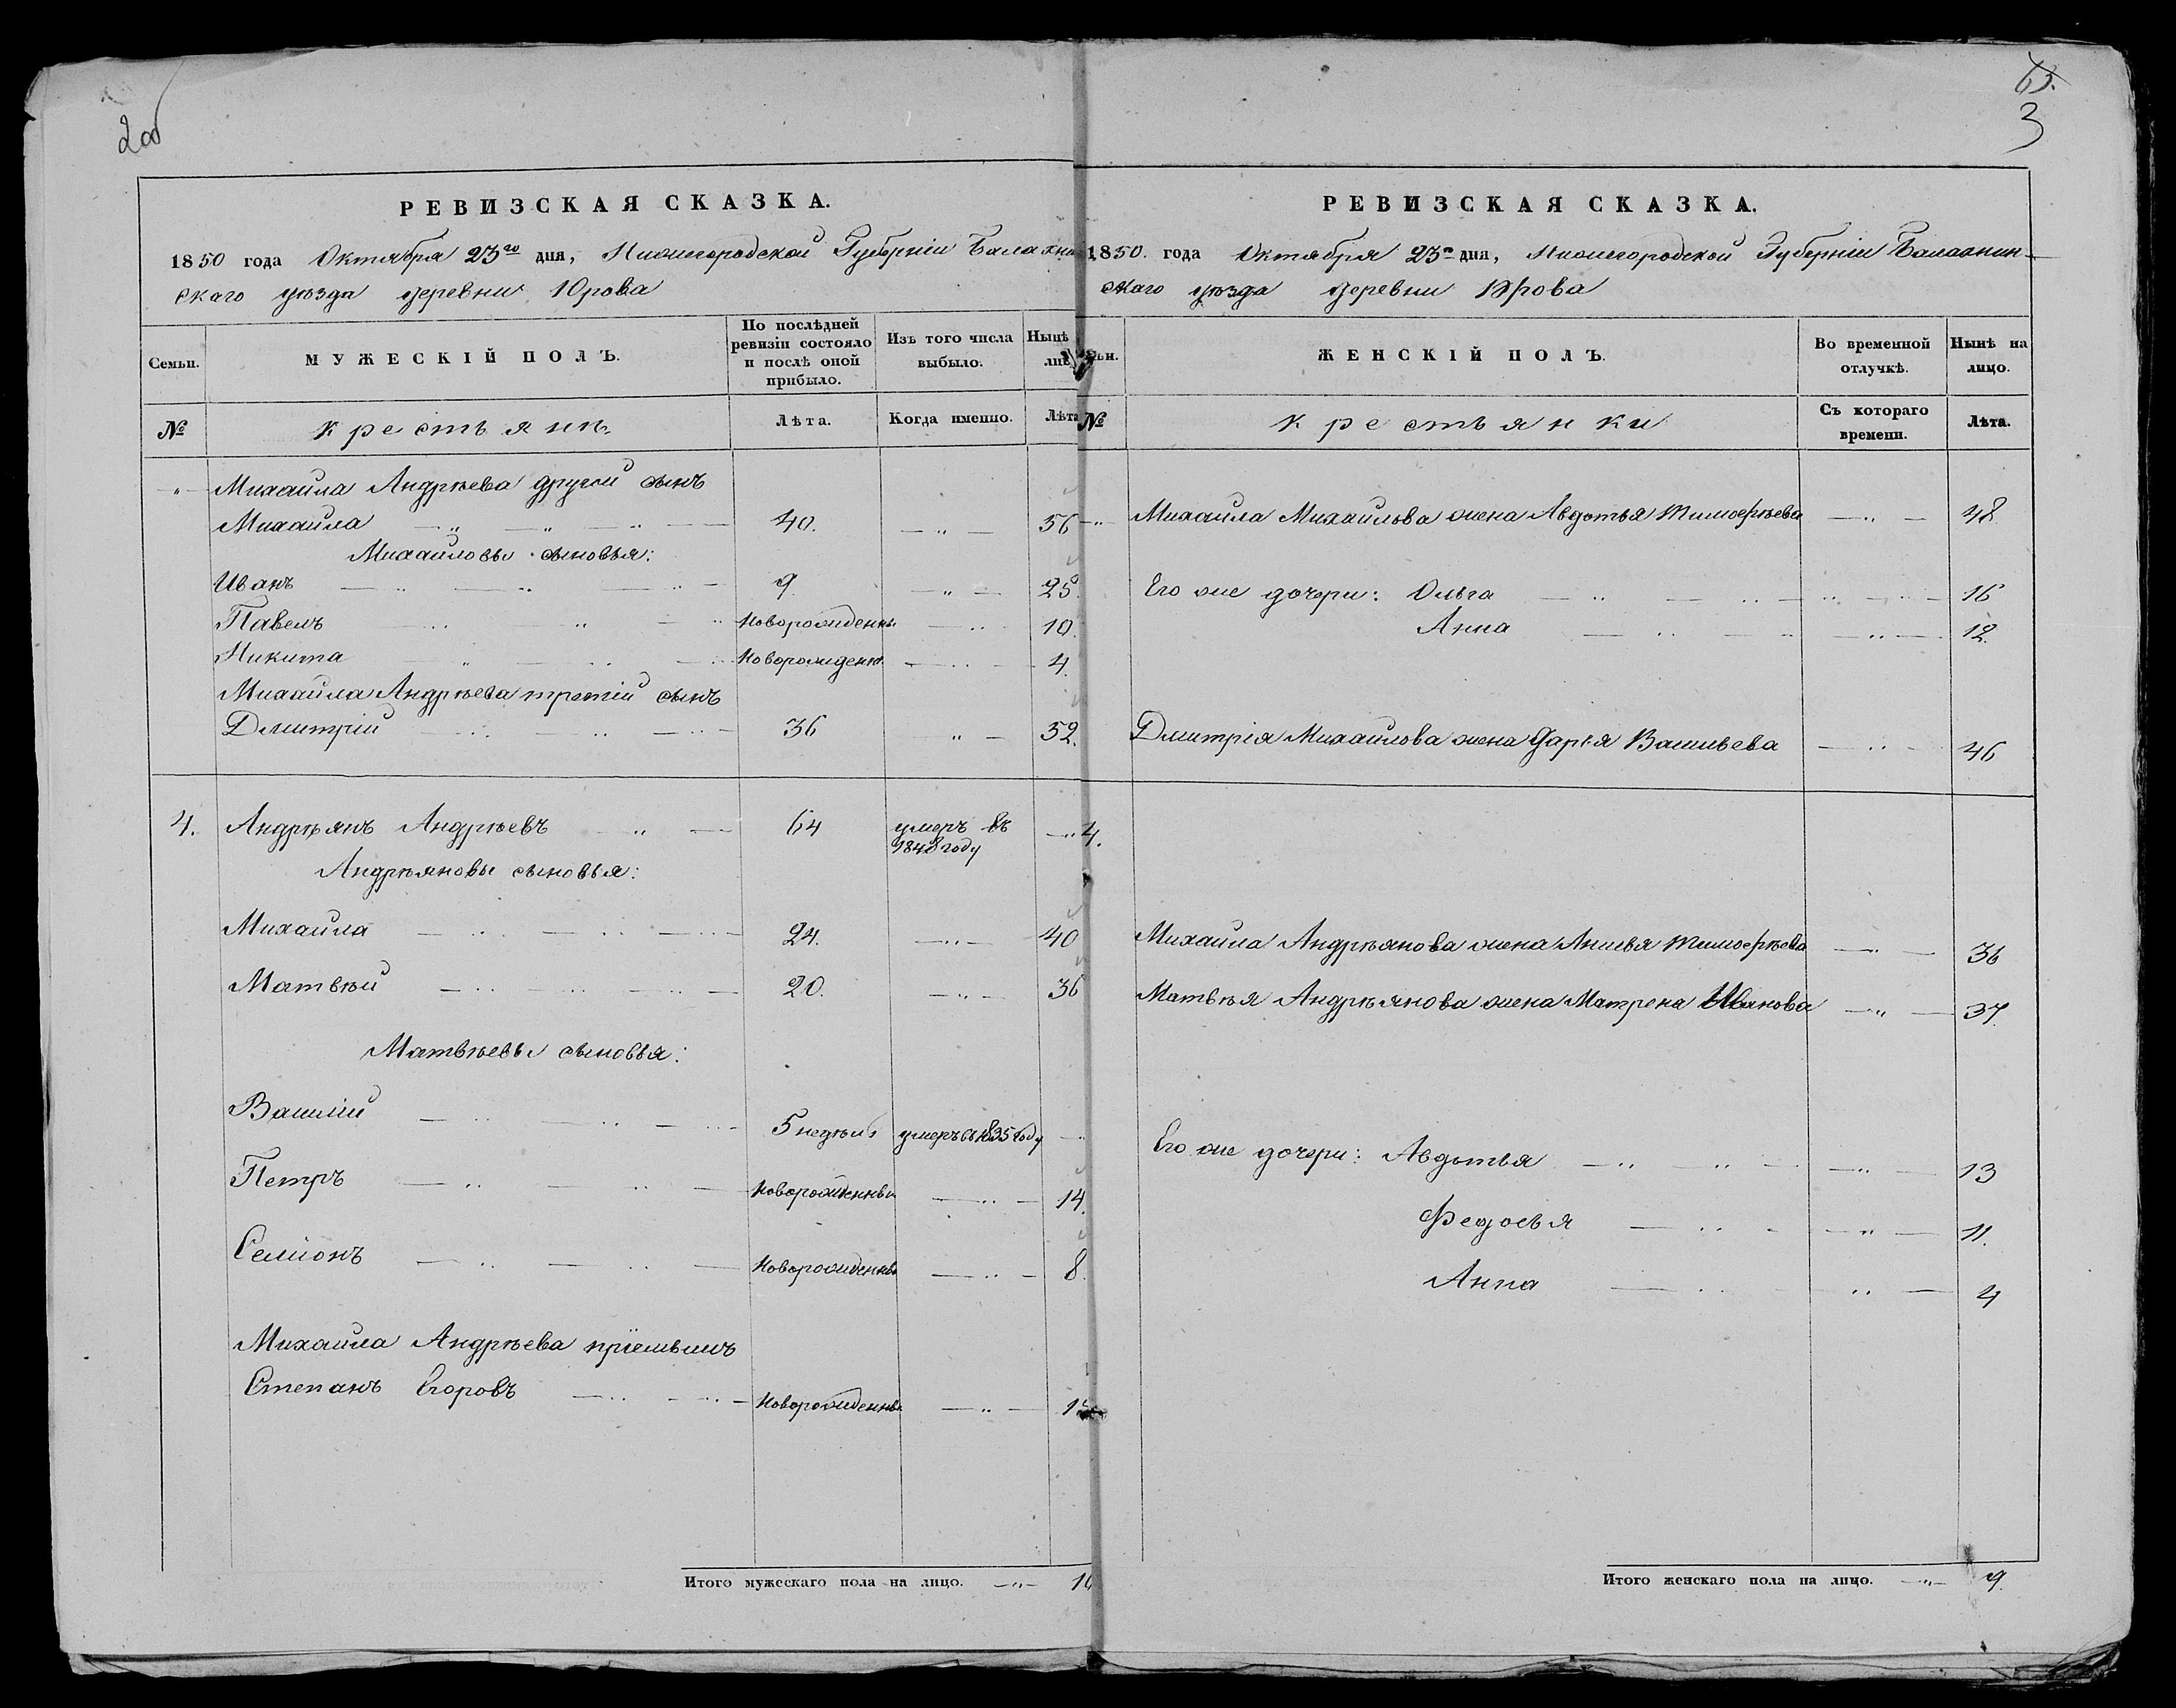 2об
РЕВИЗСКАЯ СКАЗКА.
1850 года Октября 23го дня, Нижегородской Губерніи Балахнин
скаго уѣзда деревни Юрова
Семьи.
МУЖЕСКІЙ ПОЛЪ.
По послѣдней ревизіи состояло и послѣ оной прибыло.
Изъ того числа выбыло.
Нынѣ
№
Крестьянъ
Лѣта.
Когда именно.
Лѣта
Михайла Андрѣева другой сынъ
Михайла 40. 56
Михайловы сыновья:
Иванъ 9. 25.
Павелъ Новорожденны 10.
Никита Новорожденн 4.
Михайла Андрѣева третій сынъ
Дмитрій 36 52.
4. Андрѣянъ Андрѣевъ 64 умеръ въ
1848 году
Андрѣяновы сыновья:
Михайла 24. 40
Матвѣй 20. 36
Матвѣевы сыновья:
Василій 5 недѣль умеръ въ 1835 году
Петръ Новорожденны 14.
Семіонъ Новорожденны 8.
Михайла Андрѣева пріемышъ
Степанъ Егоровъ Новорожденны
Итого мужескаго пола на лицо.
3
РЕВИЗСКАЯ СКАЗКА.
1850. года Октября 23го дня, Нижегородской Губерніи Балахнин-
скаго уѣзда деревни Юрова
ЖЕНСКІЙ ПОЛЪ.
Во временной отлучкѣ.
Нынѣ на лицо.
№
Крестьянки
Съ котораго времени.
Лѣта.
Михаила Михайлова жена Авдотья Тимофѣева 48
Его же дочери: Ольга 16
Анна 12.
Дмитрія Михайлова жена Дарья Васильева 46
4.
Михаила Андрѣянова жена Анисья Тимофѣева 36
Матвѣя Андрѣянова жена Матрена Иванова 37.
Его же дочери: Авдотья 13
Федосья 11.
Анна 4
Итого женскаго пола на лицо. 9.